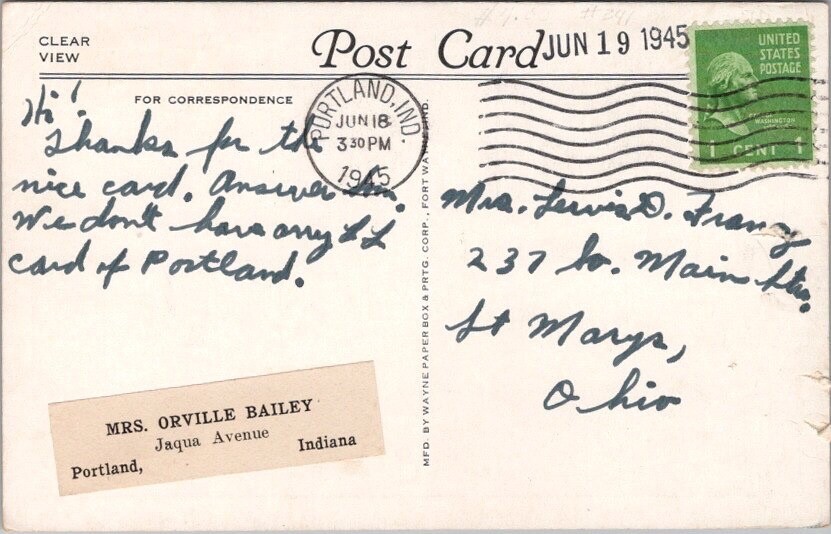 CLEAR
VIEW
Post Card
JUN 19 1945
UNITED
STATES
POSTAGE
WASHINGTON
1 CENT 1
FOR CORRESPONDENCE
PORTLAND, IND.
JUN 18
3 30 PM
1945
Hi!
Thanks for the
nice card. Answer
We don't have any LL
card of Portland.
Mrs. Lewis D. Franz
237 So. Main Str.
St Marys,
Ohio
MFD. BY WAYNE PAPER BOX & PRTG. CORP., FORT WAYNE, IND.
MRS. ORVILLE BAILEY
Jaqua Avenue
Portland, Indiana